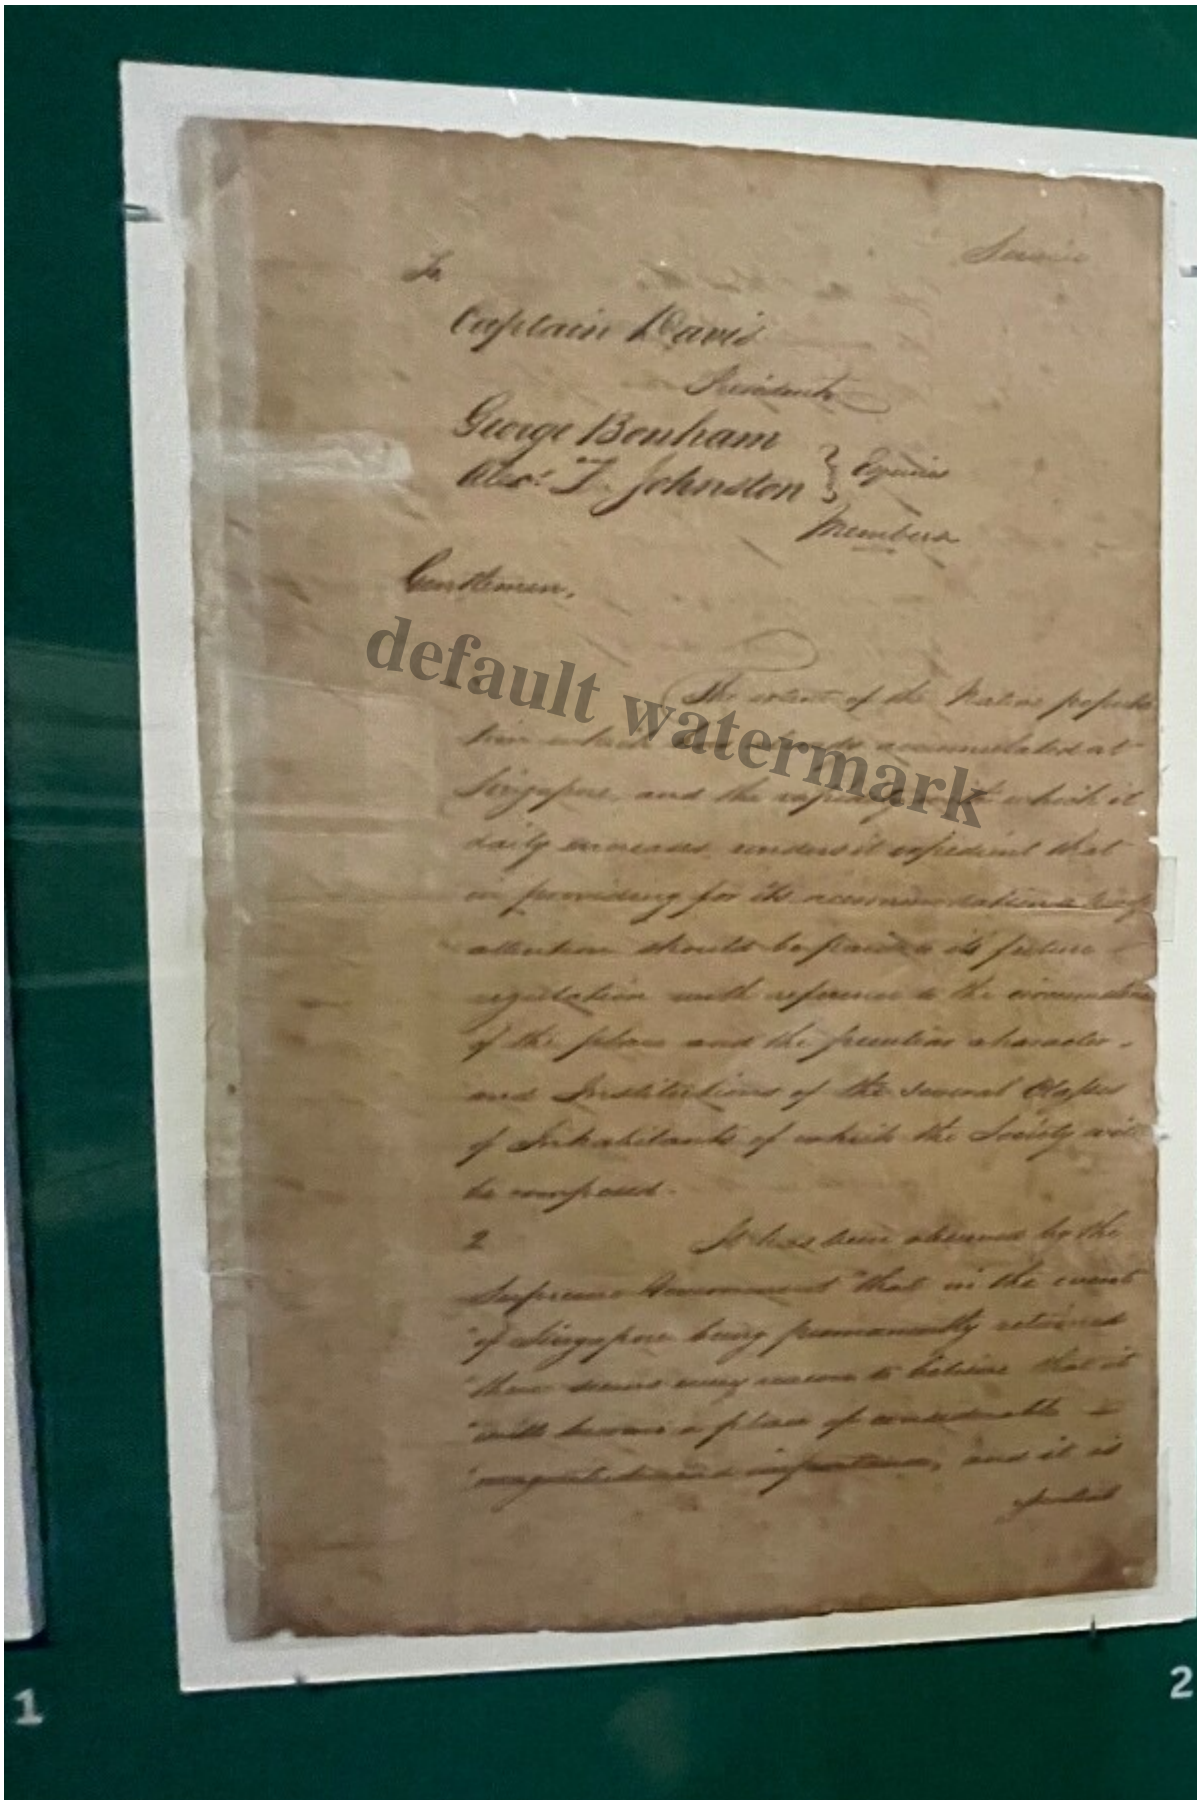 Service
To
Captain Davis
President
George Bonham
and
Alexr. L. Johnston } Esquires
Members
Gentlemen,
default watermark
The extent of the Native popula
tion which has already accumulated at
Singapore, and the rapidity with which it
daily increases renders it expedient that
in providing for its accommodation a
attention should be paid to its future
regulation with reference to the
of the place and the peculiar character
and Institutions of the several Classes
of Inhabitants of which the Society will
be composed.
2 It has been observed by the
Supreme Government "that in the event
"of Singapore being permanently retained
"there seems every reason to believe that it
"will become a place of considerable
"magnitude and importance, and it is
1
2